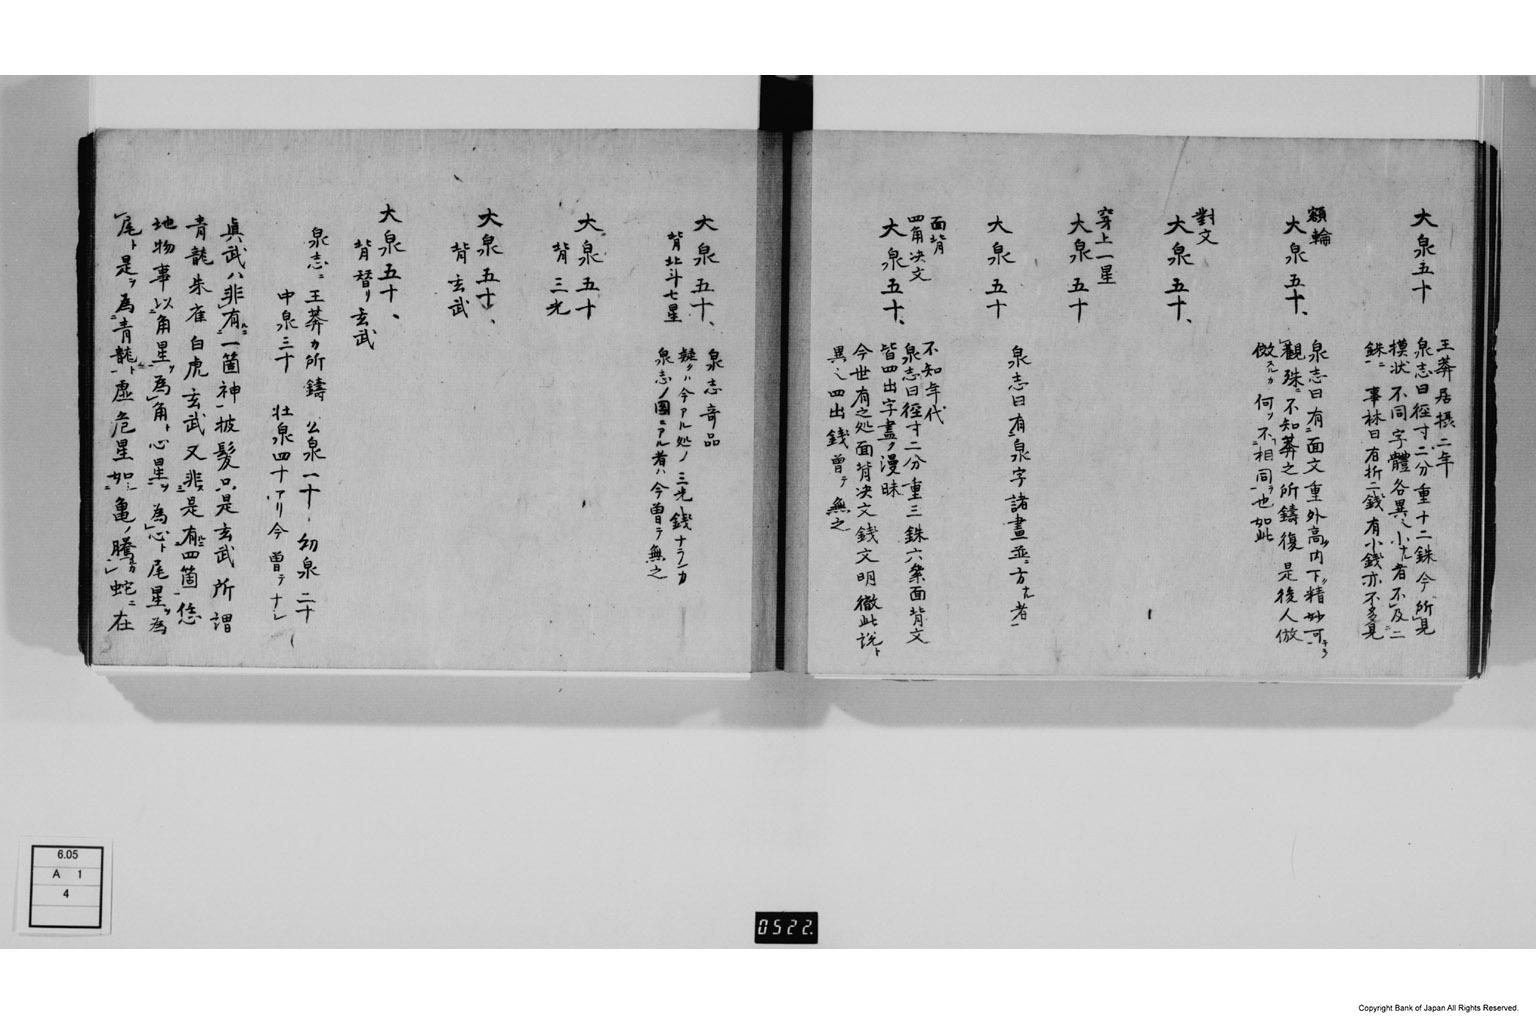 大泉五十
王莽居摂二年
泉志曰径寸二分重十二銖今所見
摸状不同字體各異ヘ小ナル者不及二
銖ニ事林曰有折二銭有小銭亦不多見
額輪
大泉五十、
泉志曰有面文重外高内下精妙可
觀殊不知莽之所鋳復是後人倣
倣スルカ何ソ不相同也如此
對文
大泉五十、
穿上一星
大泉五十
大泉五十
泉志曰有泉字諸畫並ニ方ナル者
面背
四角决文
大泉五十、
不知年代
泉志曰径寸二分重三銖六絫面背文
皆四出字畫漫昧
今世有之処面背决文銭文明徹此説ト
異ヘ四出銭曽テ無之
大泉五十、
背北斗七星
泉志奇品
疑クハ今アル処ノ三光銭ナランカ
泉志ノ圖ニアル者ハ今曽テ無之
大泉五十
背三光
大泉五十、
背玄武
大泉五十、
背替リ玄武
泉志ニ王莽カ所鋳公泉一十幼泉二十
中泉三十壮泉四十アリ今曽テナシ
眞武ハ非有一箇神披髪只是玄武所謂
青龍朱雀白虎玄武又非是有四箇恁
地物事以角星為角心星為心ト尾星為
尾ト是ヲ為青龍ト虚危星如亀ノ騰蛇在
6.05
A 1
4
0522.
Copyright Bank of Japan All Rights Reserved.